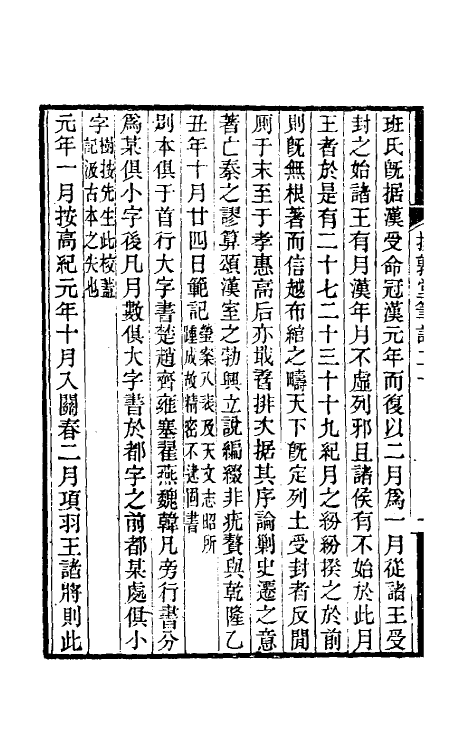 班氏旣据漢受命冠漢元年而復以二月爲一月從諸王受
封之始諸王有月漢年月不虛列邪且諸侯有不始於此月
王者於是有二十七二十三十十九紀月之紛紛揆之於前
則旣無根著而信越布綰之疇天下旣定列土受封者反閒
厠于末至于孝惠高后亦戢孴排次据其序論剿史遷之意
著亡秦之謬算頌漢室之勃興立說編綴非疣贅與乾隆乙
丑年十月廿四日範記瑩案八表及天文志昭所
踵成故精密不逮固書
別本俱于首行大字書楚趙齊雍塞翟燕魏韓凡旁行書分
爲某俱小字後凡月數俱大字書於都字之前都某處俱小
字樹按先生此校蓋
記汲古本之失也
元年一月按高紀元年十月入關春二月項羽王諸將則此
筆記二十